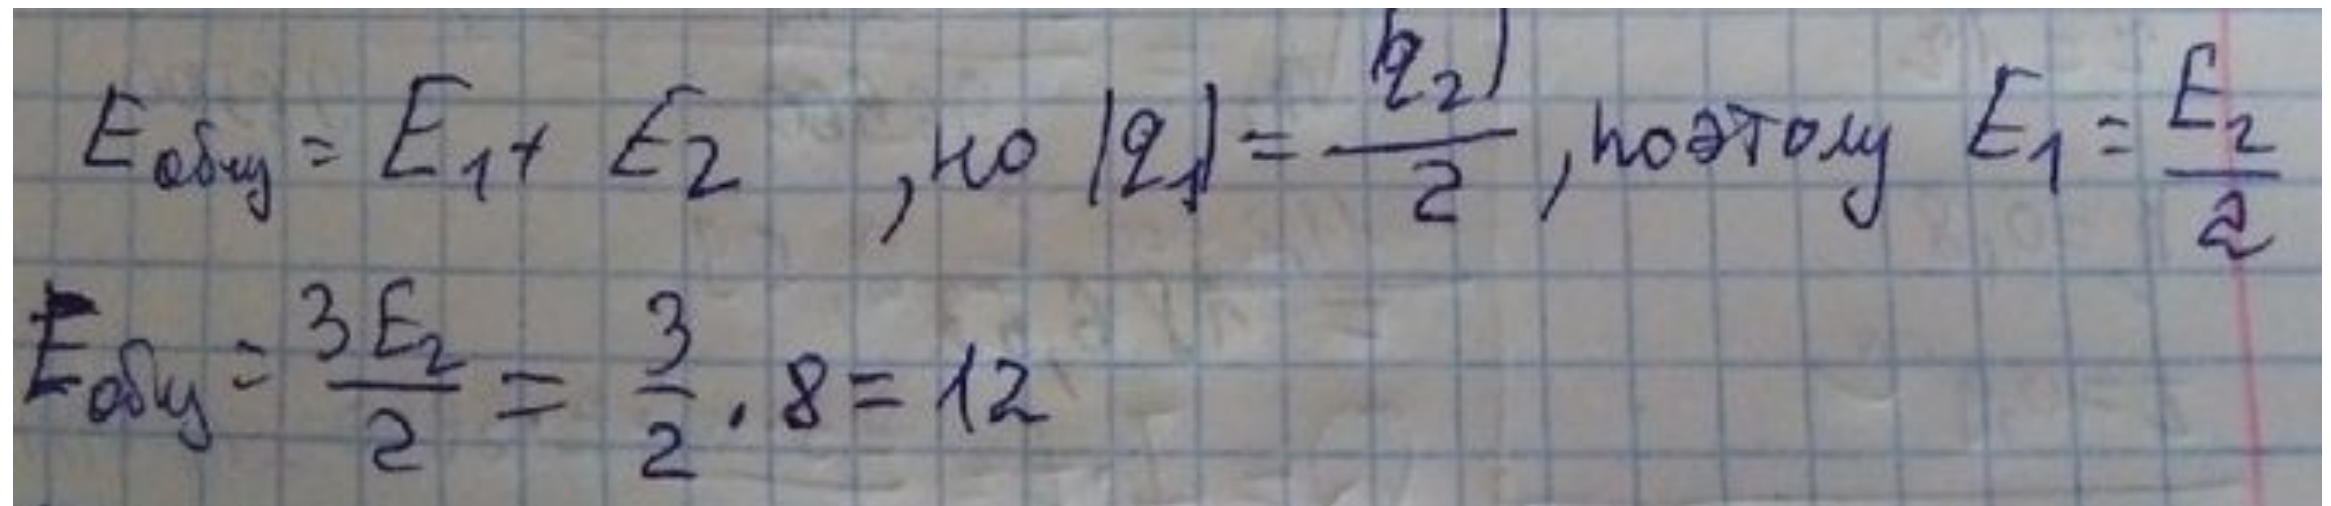 Eобщ = E₁ + E₂ , но |q₁| = |q₂|/2 , поэтому E₁ = E₂/2
Eобщ = 3E₂/2 = 3/2 · 8 = 12